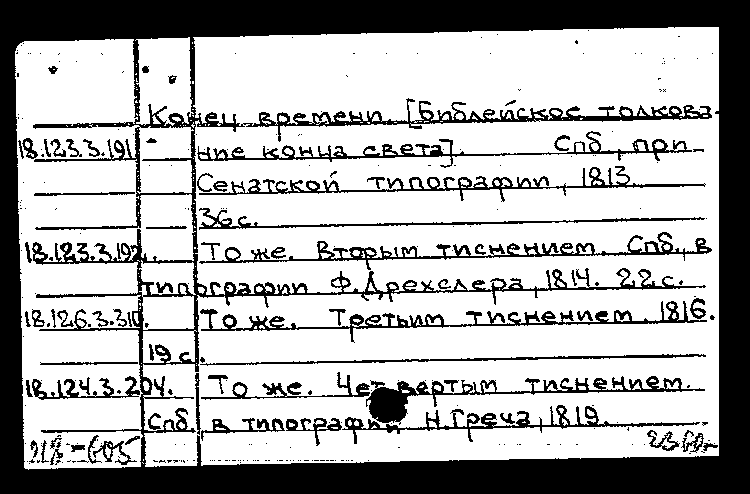 Конец времени. [Библейское толкова-
18.123.3.191 ние конца света]. Спб, при
Сенатской типографии, 1813
36с.
18.123.3.192. То же. Вторым тиснением. Спб., в
типографии Ф.Дрехслера, 1814. 22с.
18.126.3.310. То же. Третьим тиснением, 1816.
19с.
18.124.3.204. То же. Четвертым тиснением.
Спб. в типографии Н.Греча, 1819.
218-605